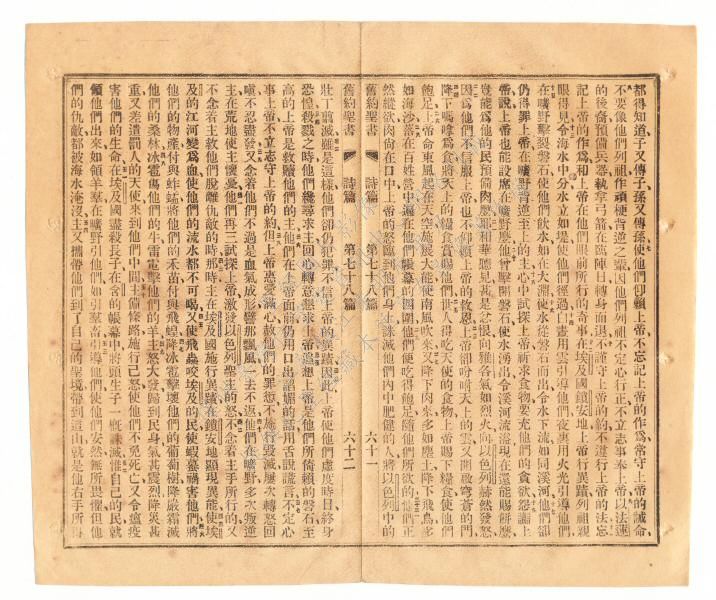 都得知道子又傳子孫又傳孫使他們仰賴上帝不忘記上帝的作爲常守上帝的誡命
不要像他們列祖作頑梗背逆之輩因他們列祖不定心行正不立志事奉上帝以法蓮
的後裔預備兵器執拿弓箭在臨陣日轉身而退不謹守上帝的約不遵行上帝的法忘
記上帝的作爲和上帝在他們眼前所行的奇事在埃及國鎖安地上帝行異蹟列祖親
眼得見令海水中分水立如是使他們經過白晝用雲引導他們夜裏用火光引導他們
在曠野擊裂磐石使他們飲水如在大淵使水從磐石而出令水下流如同溪河他們卻
仍得罪上帝在曠野背逆至上的主心中試探上帝祈求食物要充他們的貪欲怨讟上
帝說上帝也能設席在曠野麼他曾擊開磐石使水湧出令溪河流溢現在還能賜餅麼
豈能爲他的民預備肉麼耶和華聽見甚是忿恨向雅各氣如烈火向以色列赫然發怒
因爲他們不信服上帝也不仰賴上帝的救恩上帝卻吩咐天上的雲又開啟穹蒼的門
降下嗎嗱爲食將天上的糧食賞賜他們人得吃天使的食物上帝賜下糧食使他們
飽足上帝命東風起在天空施展大能使南風吹來又降下肉來多如塵土降下飛鳥多
如海沙落在百姓營中遍在他們帳幕的四圍他們便吃得飽足隨他們所欲的他們正
然縱欲肉尚在口中上帝的怒臨到他們身上誅滅他們內中肥健的人將以色列中的
舊約聖書 詩篇 第七十八篇 六十一
舊約聖書 詩篇 第七十八篇 六十二
壯丁翦滅雖是這樣他們卻仍犯罪不信上帝的異蹟因此上帝使他們虛度時日終身
恐惶殺戮之時他們纔尋求主回心轉意懇求上帝追想上帝是他們所倚賴的磐石至
高的上帝是救贖他們的主他們在上帝面前仍用口出諂媚的話用舌說謊言不定心
事上帝不立志守上帝的約但上帝憙愛滿心赦他們的罪愆不施行毀滅屢次轉怒回
嗔不忍盡發又念着他們不過是血氣成形譬那飄風一去不返他們在曠野多次叛逆
主在荒地使主懷憂他們再三試探上帝激發以色列聖主的怒不念着主手所行的又
不念着主救他們脫離仇敵的時那時主在埃及國施行異蹟在鎖安地顯現異能使埃
及的江河變爲血使他們的流水都不可喝又使飛蟲咬埃及的民使蝦蟇禍害他們將
他們的物產付與蚱蜢將他們的禾苗付與飛蝗降冰雹擊壞他們的葡萄樹降嚴霜滅
他們的桑林冰雹傷他們的牛雷電擊他們的羊主怒大發歸到民身氣甚震烈降災甚
重又差遣罰人的天使來到他們中間主備條路施行己怒使他們不免死亡又令瘟疫
害他們的生命在埃及國盡殺長子在含的帳幕中將頭生子一概誅滅惟自己的民就
領他們出來如領羊羣在曠野引他們如引羣畜引導他們使他們安然無所畏懼但他
們的仇敵都被海水淹沒主又攜帶他們到了自己的聖境帶到這山就是他右手所得